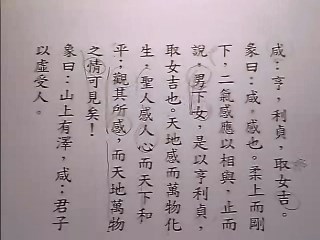 咸：亨，利貞，取女吉。
彖曰：咸。感也。柔上而剛
下，二氣感應以相與，止而
說，男下女，是以亨利貞，
取女吉也。天地感而萬物化
生，聖人感人心而天下和
平：觀其所感，而天地萬物
之情可見矣！
象曰：山上有澤，咸：君子
以虛受人。